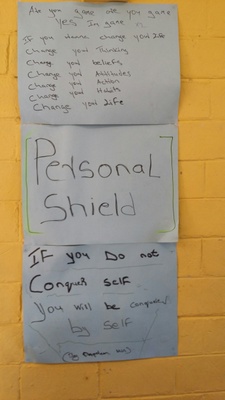 Are you game are you game
Yes Im game n
If you wanna change your Life
Change your Thinking
Change your beliefs
Change your Attitudes
Change your Action
Change your Habit
Change your Life
Personal
Shield
IF you Do not
Conquer self
You will be conquered
by self